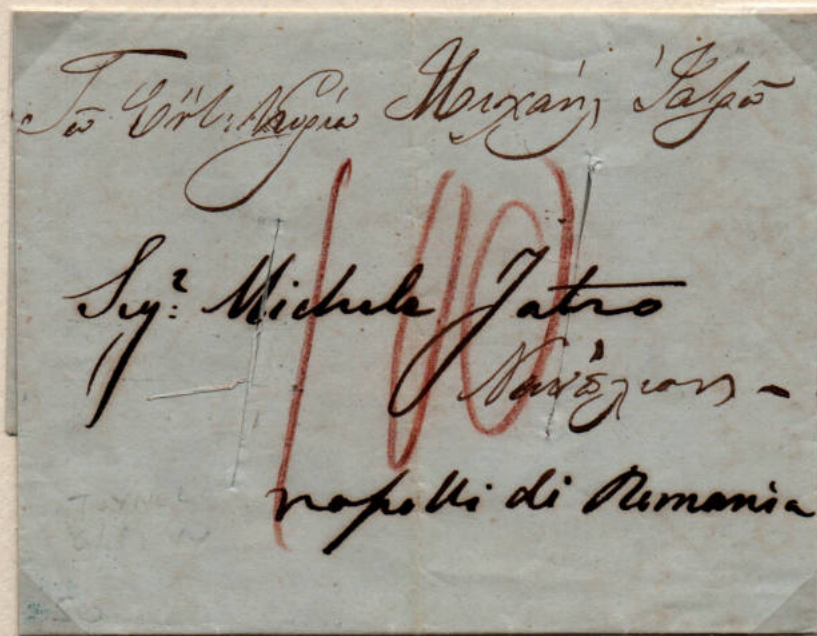 Τῷ Εὐγ: Κυρίῳ Μιχαὴλ Ἰατρῷ
100
Sigr. Michele Jatro
Ναύπλιον -
napolli di Romania